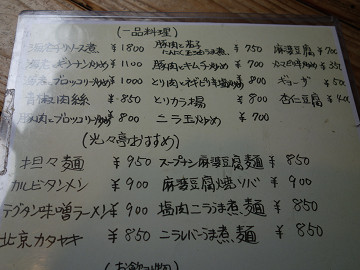 (一品料理)
海老チリソース煮 ¥1800 豚肉と茄子にんにく玉うま煮 ¥750 麻婆豆腐 ¥700
ギンナン炒め ¥1100 豚肉とキムチ炒め ¥
ブロッコリー炒め ¥1000 とり肉とネギピリ辛炒め ¥800 ギョーザ ¥50
青椒肉絲 ¥850 とりカラ揚 ¥800 杏仁豆腐 ¥40
豚肉とブロッコリー炒め ¥800 ニラ玉炒め ¥700
(光々亭おすすめ)
坦々麺 ¥950 スープチャン麻婆豆腐麺 ¥850
カルビタンメン ¥900 麻婆豆腐焼ソバ ¥900
テグタン味噌ラーメン ¥900 塩肉ニラうま煮麺 ¥850
北京カタヤキ ¥850 ニラレバーうま煮麺 ¥850
(お飲み物)